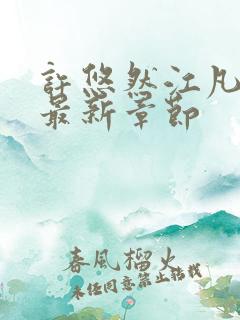 許悠然江凡
最新章節
春風榴火
未经同意禁止转载